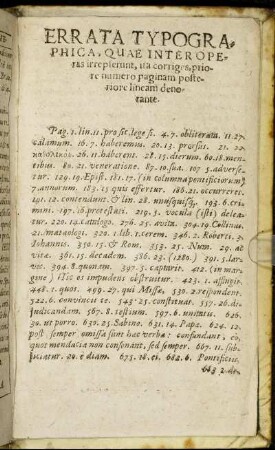 ERRATA TYPOGRA-
PHICA, QVAE INTEROPE-
ras irrepserunt, ita corriges, prio-
re numero paginam poste-
riore lineam deno-
tante.
Pag. 1. lin. 11. pro sic, lege si. 4. 7. obliteratū. 11. 27.
calamum. 16. 7. haberemus. 20. 13. prorsus. 21. 22.
26. 11. haberent. 28. 15. dierum. 60. 18. men-
tibus. 80. 21. veneratione. 87. 10. sua. 107. 5. adverse-
tur. 129. 19. Epist. 181. 17. (in columna pontificiorum)
7. annorum. 183. 15. quis effertur. 186. 21. occurreret.
191. 12. contendunt. & lin. 28. unusquisq; 193. 6. cri-
mini. 197. 16. protestari. 219. 3. vocula (isti) delea-
tur. 220. 14. catalogo. 276. 25. avita. 304. 19. Collinus.
21. matæologi. 320. 1. lib. 1. certam. 346. 2. Roberti. 3.
Johannis. 350. 15. & Rom. 353. 25. Num. 29. al-
vice. 361. 15. decadem. 386. 23. (1280.) 391. 5. lar-
vic. 394. 8. quonam. 397. 3. capturit. 412. (in mar-
gine) Illi et impudens obstruitur. 423. 1. assurgit.
448. 1. quot. 499. 27. qui Missæ. 530. 2. respondent.
522. 6. convincit te. 543. 25. constituat. 557. 26. di-
judicandam. 567. 8. testium. 597. 6. unitatis. 626.
30. ut porro. 630. 25. Sabino. 631. 14. Papæ. 624. 12.
post semper omissa sunt hæc verba: consondant, eò,
quot mendacia non consonant, sed semper. 667. 11. sub-
jiciatur. 28. è diam. 673. 18. ei. 682. 6. Pontificiis.
683 2. de.